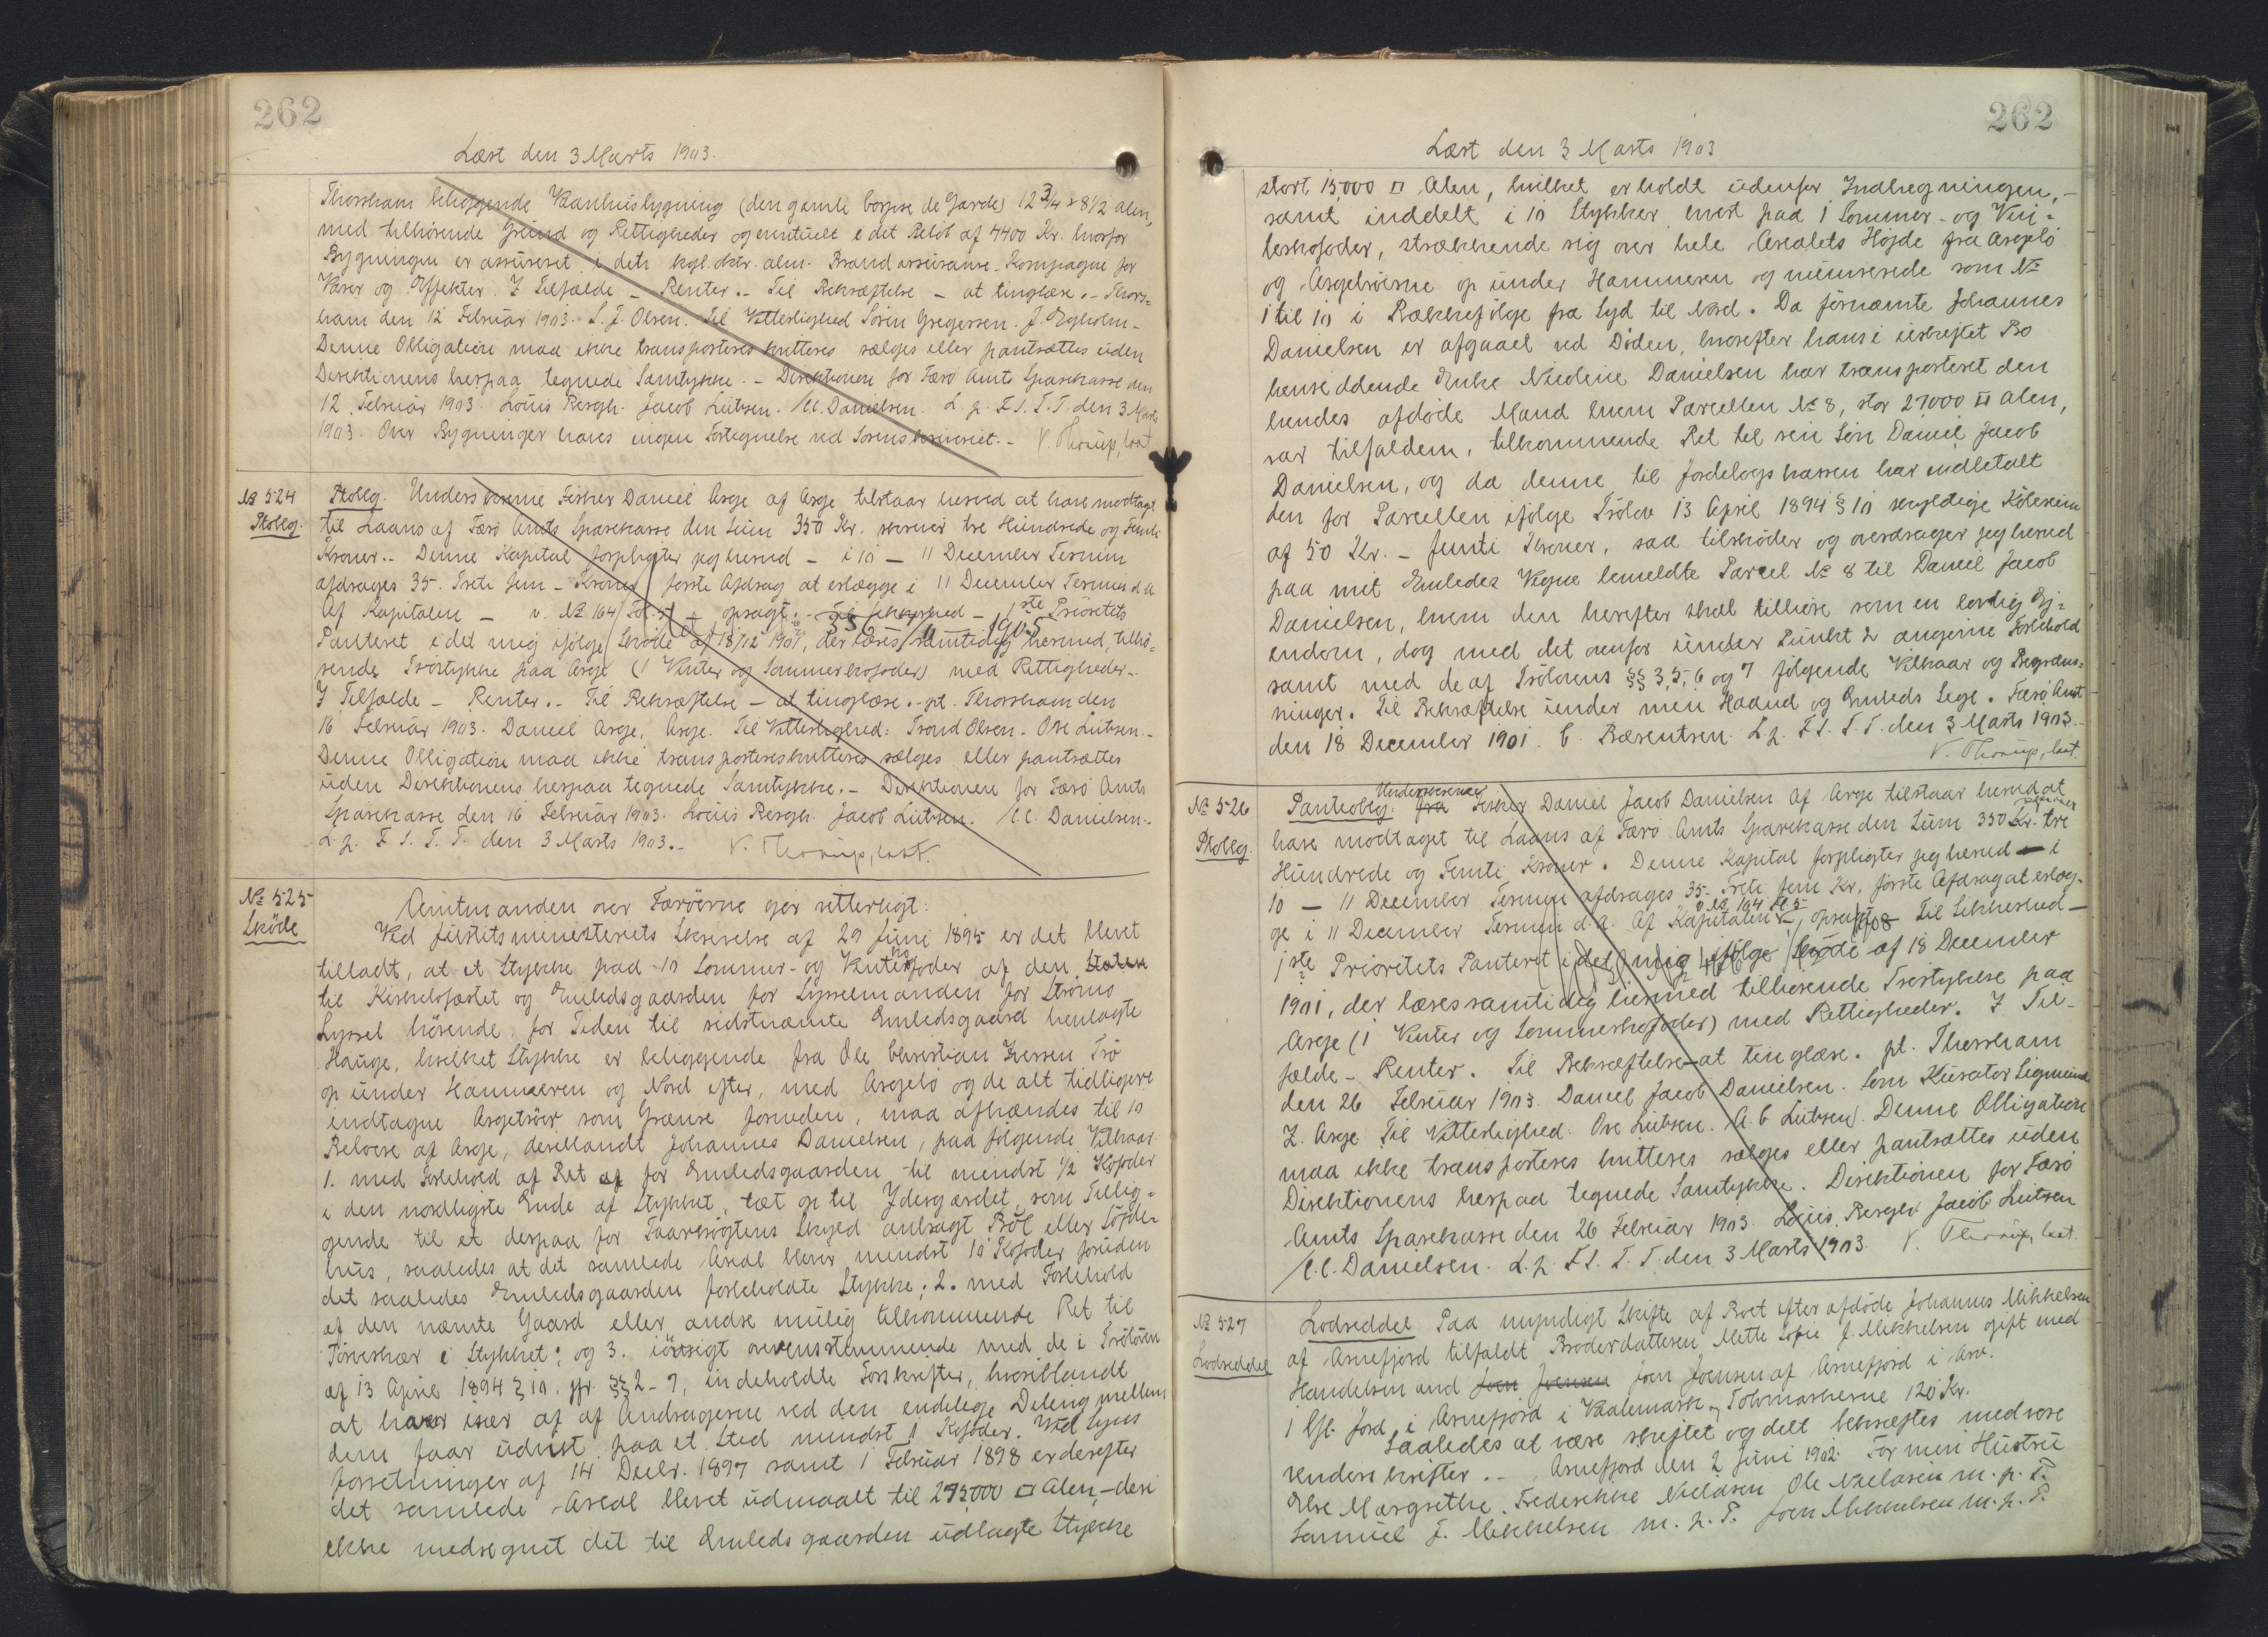 262
Læst den 3 Marts 1903.
Thorshavn beliggende Vaanhusbygning (den gamle corps de Garde) 12 3/4 x 8 1/2 Alen,
med tilhørende Grund og Rettigheder og eventuelt i det Beløb af 4400 Kr. hvorfor
Bygningen er assureret i det kgl. oktr. alm. Brandassurance-Kompagni for
Varer og Effekter. I Tilfælde – Renter. – Til Bekræftelse – at tinglæse. – Thors=
havn den 12 Februar 1903. S. J. Olsen. Til Vitterlighed Sören Gregersen. J. Egholm –
Denne Obligation maa ikke transporteres kvitteres sælges eller pantsættes uden
Direktionens herpaa tegnede Samtykke. – Direktionen for Færø Amts Sparekasse den
12 Februar 1903. Louis Bergh. Jacob Lützen. M.C. Danielsen. L. p. F. S. T. T. den 3 Marts
1903. Over Bygninger haves ingen Fortegnelse ved Sorenskriveriet. – V. Thorup, kst
№ 524
Ptoblg.
Ptoblg. Underskrevne Fisker Daniel Arge af Arge tilstaar herved at have modtaget
til Laans af Færø Amts Sparekasse den Sum 350 Kr. skriver tre Hundrede og Femti
Kroner. – Denne Kapital forpligter jeg herved – i 10 – 11 December Termin
afdrages 35. Treti fem – Kroner første Afdrag at erlægge i 11 December Termin d.A.
Af Kapitalen – v. № 164 Fol. 5 – opsagt. – Til Sikkerhed – 1ste Prioritets
Panteret i det mig ifølge Skøde af 18/12 1901, der læses samtidig hermed, tilhø=
rende Tröstykke paa Arge (1 Vinter og Sommerkofoder) med Rettigheder. –
I Tilfælde – Renter. – Til Bekræftelse – at tinglæse. – pt. Thorshavn den
16 Februar 1903. Daniel Arge, Arge. Til Vitterlighed: Trond Olsen – Ove Lützen. –
Denne Obligation maa ikke transporteres kvitteres sælges eller pantsættes
uden Direktionens herpaa tegnede Samtykke. – Direktionen for Færø Amts
Sparekasse den 16 Februar 1903. Louis Bergh. Jacob Lützen. M.C. Danielsen. –
L. p. F. S. T. T. den 3 Marts 1903. – V. Thorup, kst.
№ 525
Skøde
Amtmanden over Færøerne gör vitterligt:
Ved Justitsministeriets Skrivelse af 29 Juni 1895 er det blevet
tilladt, at et Stykke paa 10 Sommer- og Vinterkofoder af den Staten
til Kirkebofæstet og Embedsgaarden for Sysselmanden for Strømø
Syssel hörende, for Tiden til sidstnæmte Embedsgaard henlagte
Hauge, hvilket Stykke er beliggende fra Ole Christian Iversen Trö
op under Hammeren og Nord efter, med Argebø og de alt tidligere
indtagne Argetröer som Grænse forneden, maa afhændes til 10
Beboere af Arge, deriblandt Johannes Danielsen, paa følgende Vilkaar
1. med Forbehold af Ret af for Embedsgaarden til mindst 1/2 Kofoder
i den nordligste Ende af Stykket, tæt op til Ydergærdet, som Tillig=
gende til et derpaa for Faaresögtens Skyld anbragt Ból eller Söjde-
hus, saaledes at det samlede Areal bliver mindst 10 Kofoder foruden
det saaledes Embedsgaarden forbeholdte Stykke; 2. med Forbehold
af den nævnte Gaard eller andre mulig tilkommende Ret til
Törveskær i Stykket; og 3. iövrigt overensstemmende med de i Tröloven
af 13 April 1894 § 10. jfr. §§ 2-9, indeholdte Forskrifter, hvoriblandt
at hver især af af Andragerne ved den endelige Deling mellem
dem faar udvist paa et Sted mindst 1 Kofoder. Ved Syns
forretninger af 14 Decbr. 1897 samt 1 Februar 1898 er derefter
det samlede Areal blevet udmaalt til 275,000 □ Alen, – deri
ikke medregnet det til Embedsgaarden udlagte Stykke
262
Læst den 3 Marts 1903
stort 15,000 □ Alen, hvilket er holdt udenfor Indhegningen, –
samt inddelt i 10 Stykker hvert paa 1 Sommer- og Vin=
terkofoder, strækkende sig over hele Arealets Højde fra Argebø
og Argetröerne op under Hammeren og numererede som №
1 til 10 i Rækkefølge fra Syd til Nord. Da förnæmte Johannes
Danielsen er afgaaet ved Døden, hvorefter hans i uskiftet Bo
hensiddende Enke Nicoline Danielsen har transporteret den
hendes afdøde Mand hvem Parcellen № 8, stor 27000 □ Alen,
var tilfalden, tilkommende Ret til sin Søn Daniel Jacob
Danielsen, og da denne til Jordebogskassen har indbetalt
den for Parcellen ifølge Trölov 13 April 1894 § 10 skyldige Købesum
af 50 Kr. – femti Kroner, saa tilskøder og overdrager jeg herved
paa mit Embedes Vegne bemeldte Parcel № 8 til Daniel Jacob
Danielsen, hvem den herefter skal tilhøre som en lovlig Ej=
endom, dog med det ovenfor under Punkt 2 angivne Forbehold
samt med de af Trölovens §§ 3, 5, 6 og 7 følgende Vilkaar og Begræns=
ninger. Til Bekræftelse under min Haand og Embeds Segl. Færø Amt
den 18 December 1901. C. Bærentsen. L. p. F. S. T. T. den 3 Marts 1903.
V. Thorup, kst.
№ 526
Ptoblg.
Panteoblg. fra Underskrevne Fisker Daniel Jacob Danielsen af Arge tilstaar herved at
have modtaget til Laans af Færø Amts Sparekasse den Sum 350 Kr. skriver tre
Hundrede og Femti Kroner. Denne Kapital forpligter jeg herved – i
10 – 11 December Termin afdrages 35 – Treti fem Kr, første Afdrag at erlæg-
ge i 11 December Termin d.A. Af Kapitalen – v № 164 Fl. 5 –, opsagt. Til Sikkerhed –
1ste Prioritets Panteret i det mig ifølge Skøde af 18 December
1901, der læses samtidig hermed tilhørende Tröstykke paa
Arge (1 Vinter og Sommerkofoder) med Rettigheder. I Til-
fælde – Renter. Til Bekræftelse – at tinglæse. pt. Thorshavn
den 26 Februar 1903. Daniel Jacob Danielsen. Som Kurator Sigmund
Z. Arge. Til Vitterlighed: Ove Lützen. A. C. Lützen). Denne Obligation
maa ikke transporteres kvitteres sælges eller pantsættes uden
Direktionens herpaa tegnede Samtykke. Direktionen for Færø
Amts Sparekasse den 26 Februar 1903. Louis Bergh. Jacob Lützen
M.C. Danielsen. L. p. F. S. T. T. den 3 Marts 1903. V. Thorup, kst.
№ 527
Lodseddel
Lodseddel Paa myndigt Skifte af Boet efter afdøde Johannes Mikkelsen
af Arnefjord tilfaldt Broderdatteren Mette Sofie J. Mikkelsen gift med
Handelsmand Joen Joensen Joen Joensen af Arnefjord i Arv.
1 Gl. Jord i Arnefjord i Vaalemark og Tobmarkerne 120 Kr.
Saaledes at være skriftet og delt bekræftes med vore
Underskrifter. – Arnefjord den 2 Juni 1902. For min Hustru
Else Margrethe Frederikke Nielasen Ole Nielasen m. p. P.
Samuel J. Mikkelsen m. p. P. Joen Mikkelsen m. p. P.